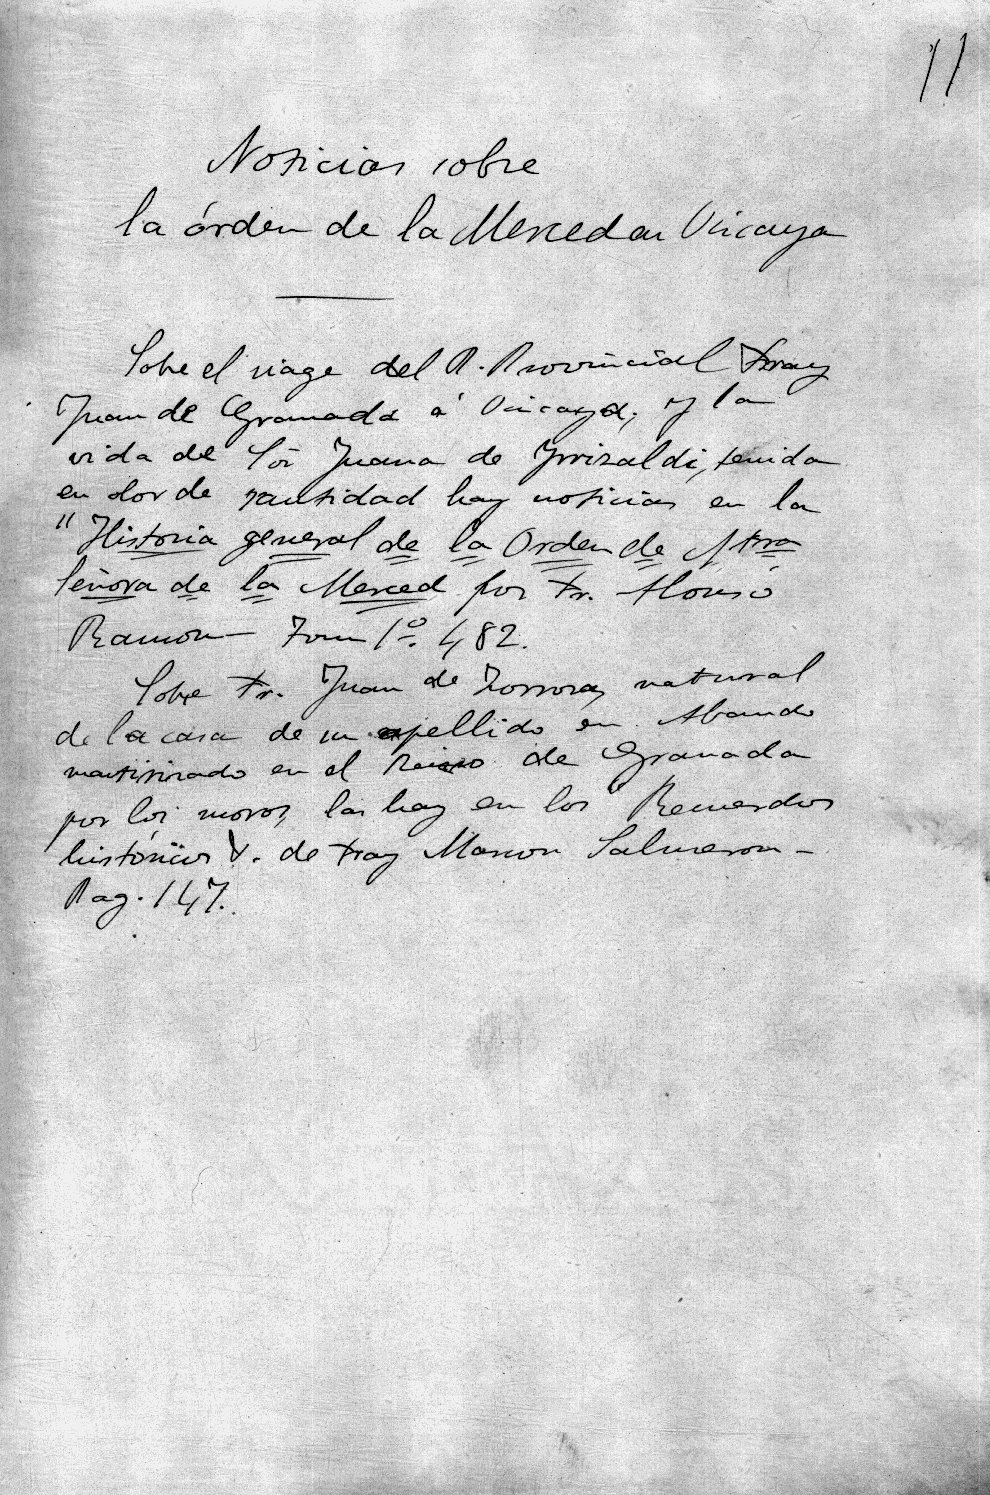 11
Noticias sobre
la órden de la Merced en Vizcaya
Sobre el viage del R. Provincial Fray
Juan de Granada á Vizcaya, y la
vida de Sor Juana de Yrrizaldi, tenida
en olor de santidad hay noticias en la
"Historia general de la Orden de Ntra
Señora de la Merced por Fr. Alonso
Ramon — Tom 1º. 482.
Sobre Fr. Juan de Zorroza, natural
de la casa de su apellido en Abando
martirizado en el Reino de Granada
por los moros, las hay en los Recuerdos
históricos &. de Fray Marcos Salmeron —
Pag. 147.